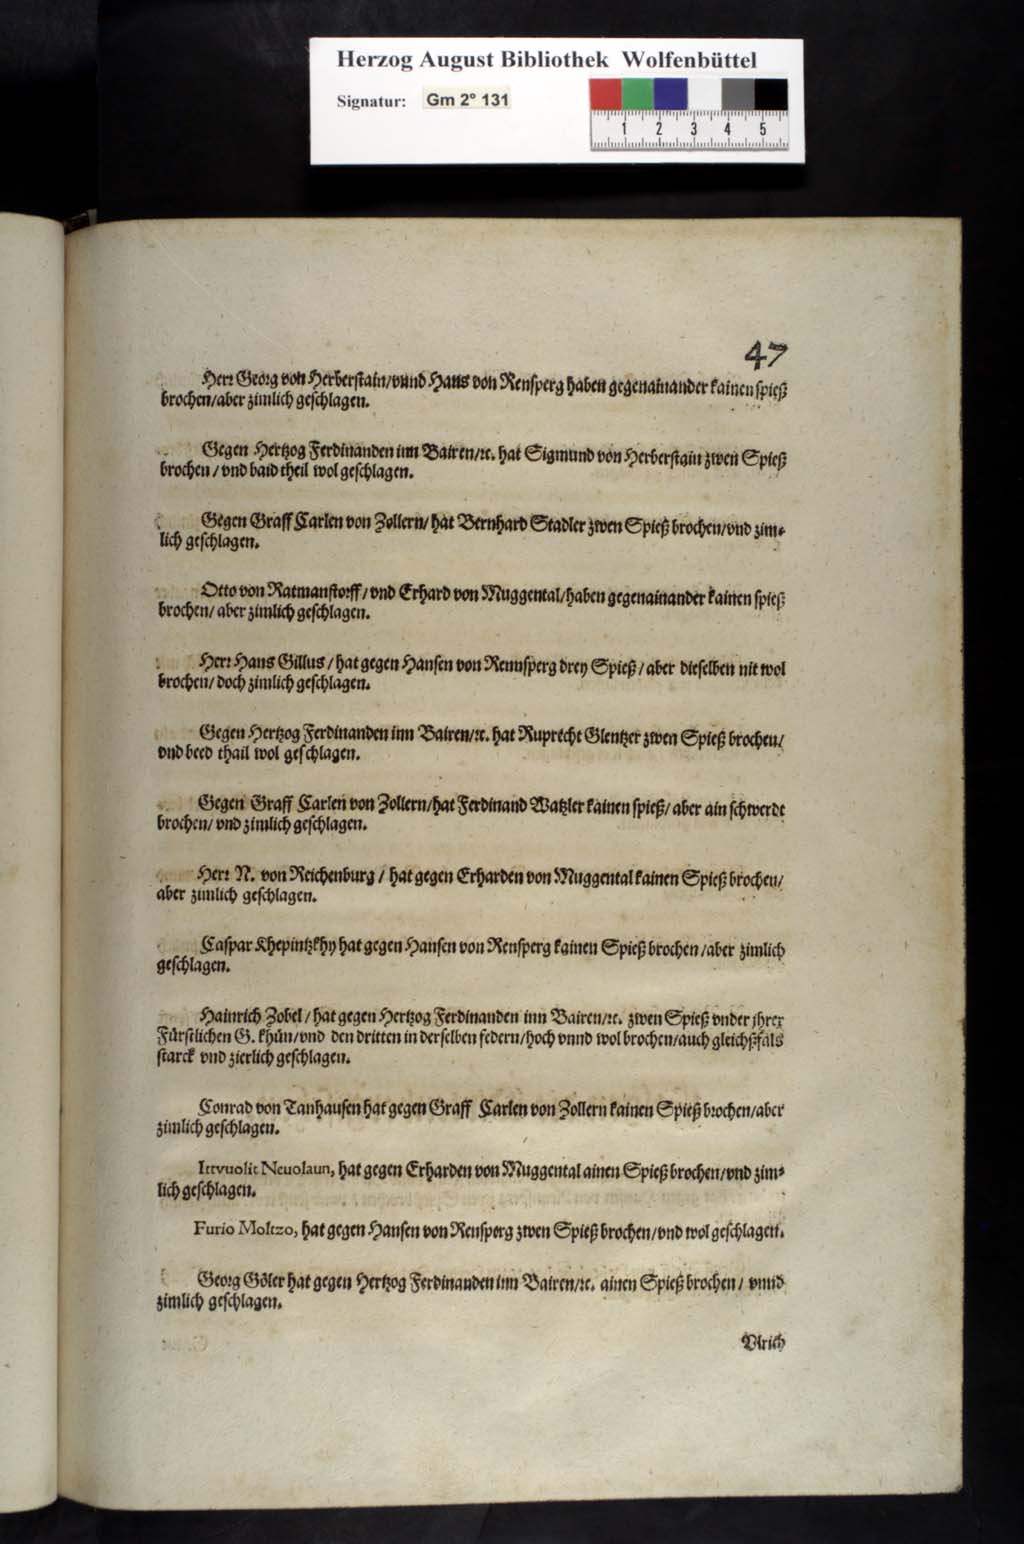 Herzog August Bibliothek Wolfenbüttel
Signatur: Gm 2° 131
1 2 3 4 5
47
Herr Georg von Herberstain/vnnd Hans von Rensperg haben gegenainander kainen spieß
brochen/aber zimlich geschlagen.
Gegen Hertzog Ferdinanden inn Bairen/ꝛc. hat Sigmund von Herberstain zwen Spieß
brochen/vnd baid theil wol geschlagen.
Gegen Graff Carlen von Zollern/hat Bernhard Stadler zwen Spieß brochen/vnd zim-
lich geschlagen.
Otto von Ratmanstorff/vnd Erhard von Muggental/haben gegenainander kainen spieß
brochen/aber zimlich geschlagen.
Herr Hans Gillus/hat gegen Hansen von Rennsperg drey Spieß/aber dieselben nit wol
brochen/doch zimlich geschlagen.
Gegen Hertzog Ferdinanden inn Bairen/ꝛc. hat Ruprecht Glentzer zwen Spieß brochen/
vnd beed thail wol geschlagen.
Gegen Graff Carlen von Zollern/hat Ferdinand Watzler kainen spieß/aber ain schwerdt
brochen/vnd zimlich geschlagen.
Herr N. von Reichenburg/hat gegen Erharden von Muggental kainen Spieß brochen/
aber zimlich geschlagen.
Caspar Khepintzkhy hat gegen Hansen von Rensperg kainen Spieß brochen/aber zimlich
geschlagen.
Hainrich Zobel/hat gegen Hertzog Ferdinanden inn Bairen/ꝛc. zwen Spieß vnder jhrer
Fürstlichen G. khün/vnd den dritten in derselben federn/hoch vnnd wol brochen/auch gleichßfals
starck vnd zierlich geschlagen.
Conrad von Tanhausen hat gegen Graff Carlen von Zollern kainen Spieß brochen/aber
zimlich geschlagen.
Ittvuolit Neuolaun, hat gegen Erharden von Muggental ainen Spieß brochen/vnd zim-
lich geschlagen.
Furio Moltzo, hat gegen Hansen von Rensperg zwen Spieß brochen/vnd wol geschlagen.
Georg Göler hat gegen Hertzog Ferdinanden inn Bairen/ꝛc. ainen Spieß brochen/vnnd
zimlich geschlagen.
Vlrich